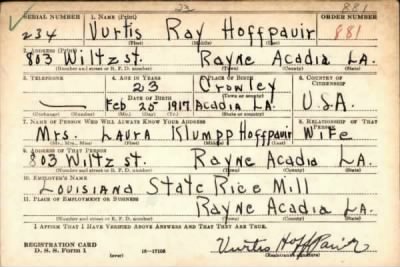 23
SERIAL NUMBER 1. NAME (Print) ORDER NUMBER
881
234 Vurtis Ray Hoffpauir 881
(First) (Middle) (Last)
2. ADDRESS (Print)
803 Wiltz st. Rayne Acadia LA.
(Number and street or R. F. D. number) (Town) (County) (State)
3. TELEPHONE 4. AGE IN YEARS 5. PLACE OF BIRTH 6. COUNTRY OF CITIZENSHIP
23 Crowley
DATE OF BIRTH (Town or county)
— Feb 25 1917 Acadia LA. U.S.A.
(Exchange) (Number) (Mo.) (Day) (Yr.) (State or country)
7. NAME OF PERSON WHO WILL ALWAYS KNOW YOUR ADDRESS 8. RELATIONSHIP OF THAT PERSON
Mrs. Laura Klumpp Hoffpauir Wife
(Mr., Mrs., Miss) (First) (Middle) (Last)
9. ADDRESS OF THAT PERSON
803 Wiltz st. Rayne Acadia LA.
(Number and street or R. F. D. number) (Town) (County) (State)
10. EMPLOYER'S NAME
Louisiana State Rice Mill
11. PLACE OF EMPLOYMENT OR BUSINESS
Rayne Acadia LA
(Number and street or R. F. D. number) (Town) (County) (State)
I AFFIRM THAT I HAVE VERIFIED ABOVE ANSWERS AND THAT THEY ARE TRUE.
REGISTRATION CARD
D. S. S. Form 1 (over) Vurtis Hoffpauir
(Registrant's signature)